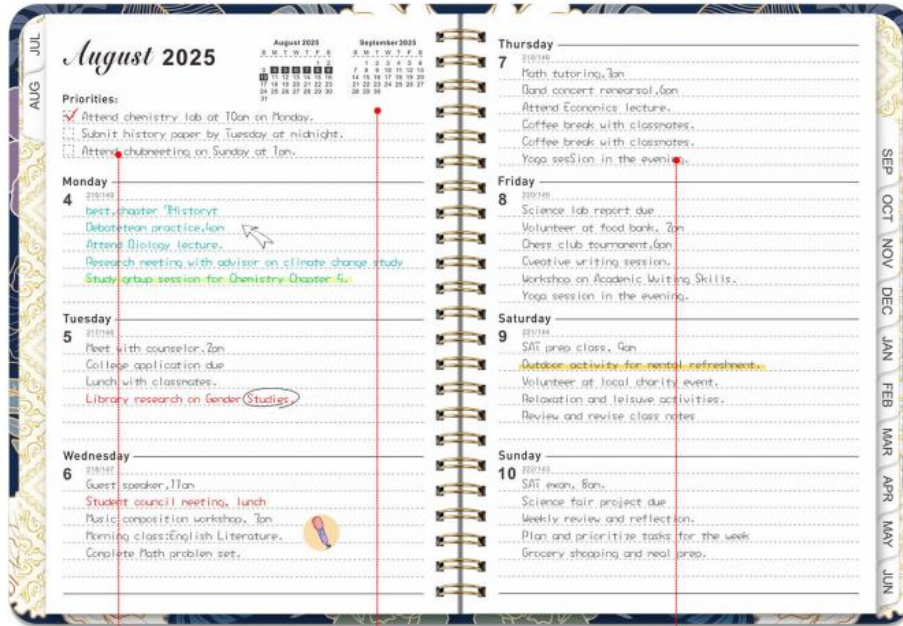 JUL
AUG
August 2025
August 2025
S M T W T F S
1 2
3 4 5 6 7 8 9
10 11 12 13 14 15 16
17 18 19 20 21 22 23
24 25 26 27 28 29 30
31
September 2025
S M T W T F S
1 2 3 4 5 6
7 8 9 10 11 12 13
14 15 16 17 18 19 20
21 22 23 24 25 26 27
28 29 30
Priorities:
Attend chemistry lab at 10am on Monday.
Submit history paper by Tuesday at midnight.
Attend chubmeeting on Sunday at 1pm.
Monday
4
216/149
best,chapter 7Historyt
Debateteam practice,4pm
Attend Biology lecture.
Research meeting with advisor on climate change study
Study grbup session for Chemistry Chapter 5.
Tuesday
5
217/148
Meet with counselor,2pm
College application due
Lunch with classmates.
Library research on Gender Studies.
Wednesday
6
218/147
Guest speaker,11am
Student council meeting, lunch
Music composition workshop, 3pm
Morning class:English Literature.
Complete Math problem set.
Thursday
7
219/146
Math tutoring,3pm
Band concert renearsal,6pm
Attend Economics lecture.
Coffee break with classmates.
Coffee break with classmates.
Yoga sesSion in the evening.
Friday
8
220/145
Science lab report due
Volunteer at food bank, 2pm
Chess club tournament,6pm
Cveative writing session.
Workshop on Academic Wviting Skills.
Yoga session in the evening.
Saturday
9
221/144
SAT prep class, 9am
Outdoor activity for mental refreshment.
Volunteer at local charity event.
Relaxation and leisuve activities.
Review and revise class notes
Sunday
10
222/143
SAT exam, 8am.
Science fair project due
Weekly review and reflection.
Plan and prioritize tasks for the week
Grocery shopping and meal prep.
SEP
OCT
NOV
DEC
JAN
FEB
MAR
APR
MAY
JUN